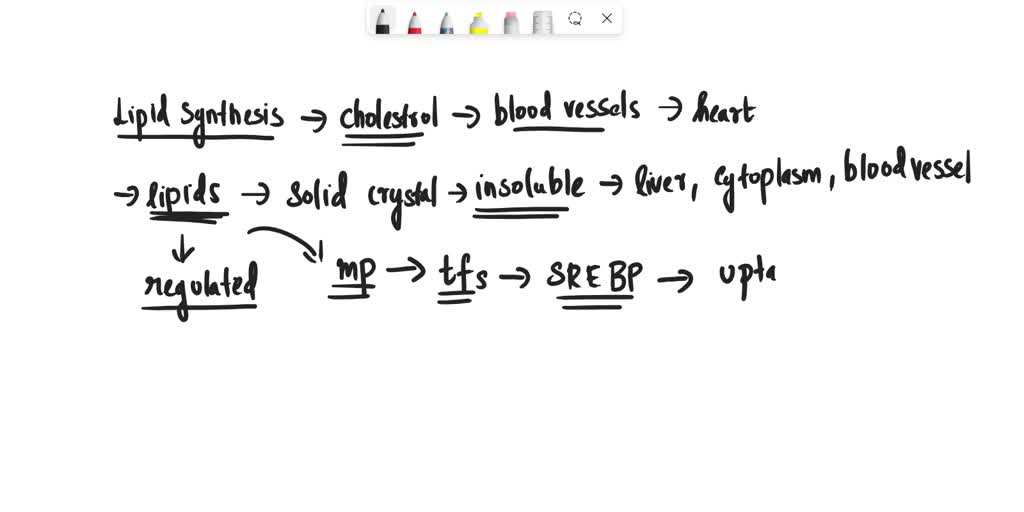 Lipid synthesis → cholestrol → blood vessels → heart
→ lipids → solid crystal → insoluble → liver, cytoplasm, blood vessel
↓
regulated mp → tfs → SREBP → upta